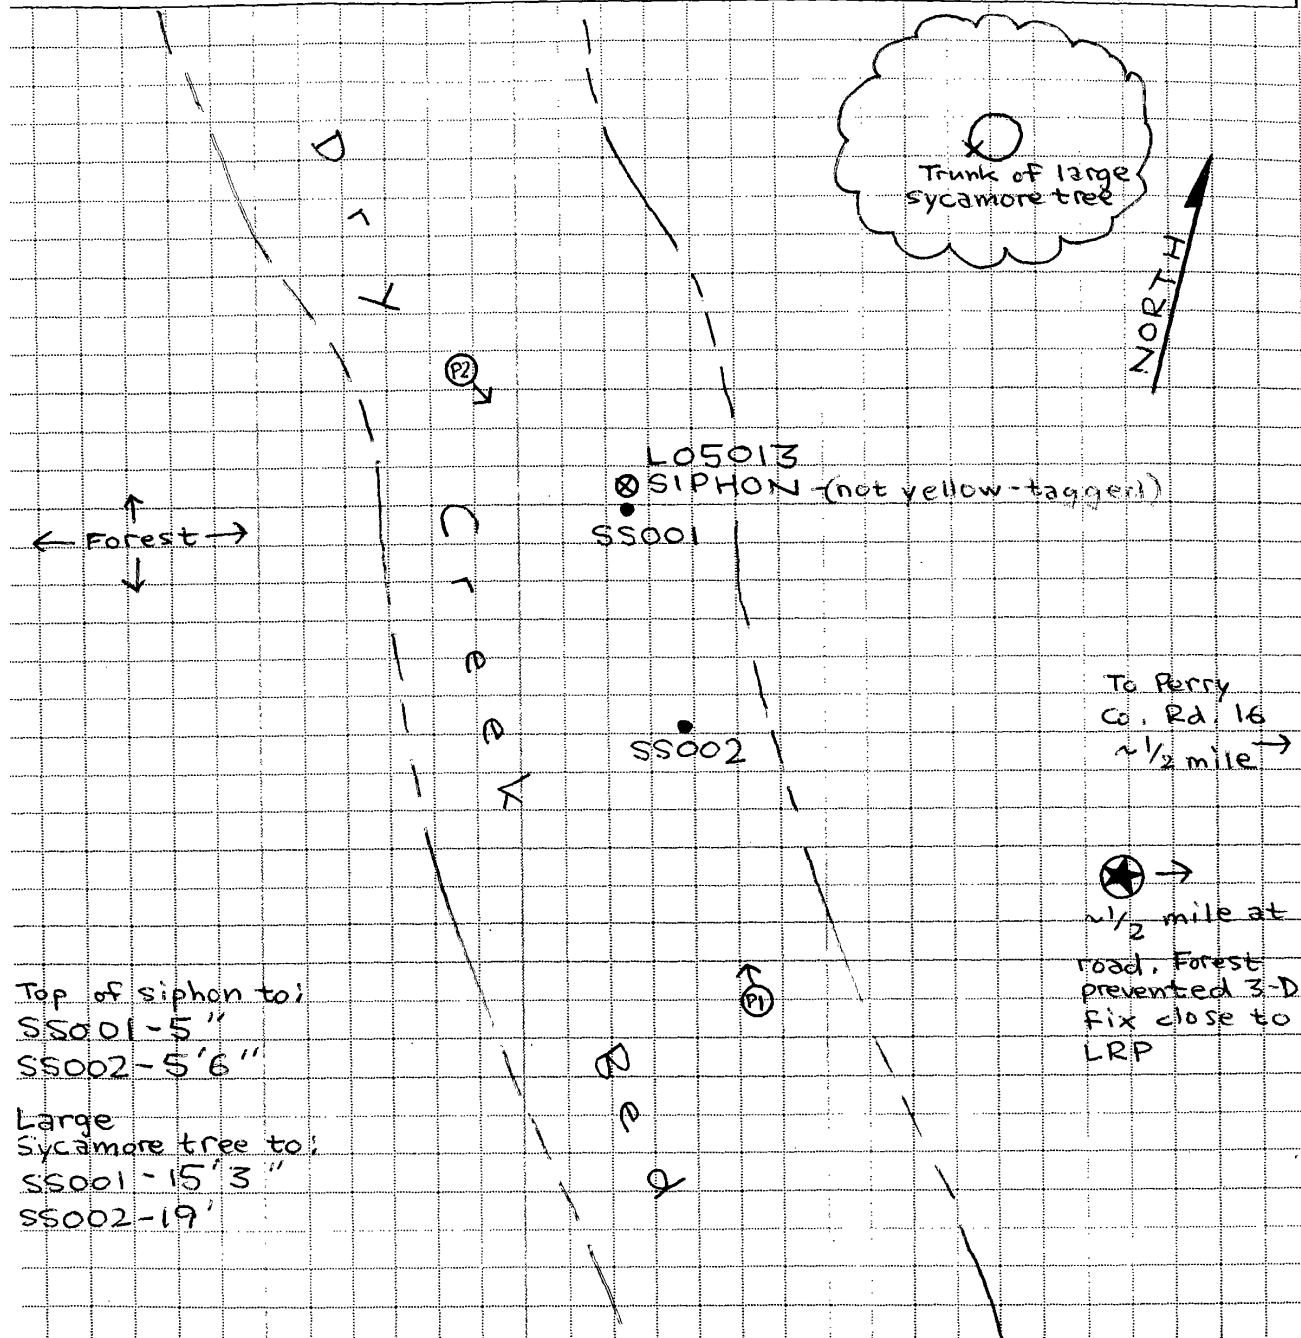 Trunk of large
sycamore tree
NORTH
Dry Creek Bed
P2
LO5013
SIPHON-(not yellow-tagged)
SS001
← Forest →
SS002
To Perry
Co. Rd. 16
~1/2 mile →
~1/2 mile at
road. Forest
prevented 3-D
fix close to
LRP
P1
Top of siphon to:
SS001-5"
SS002-5'6"
Large
Sycamore tree to:
SS001-15'3"
SS002-19'